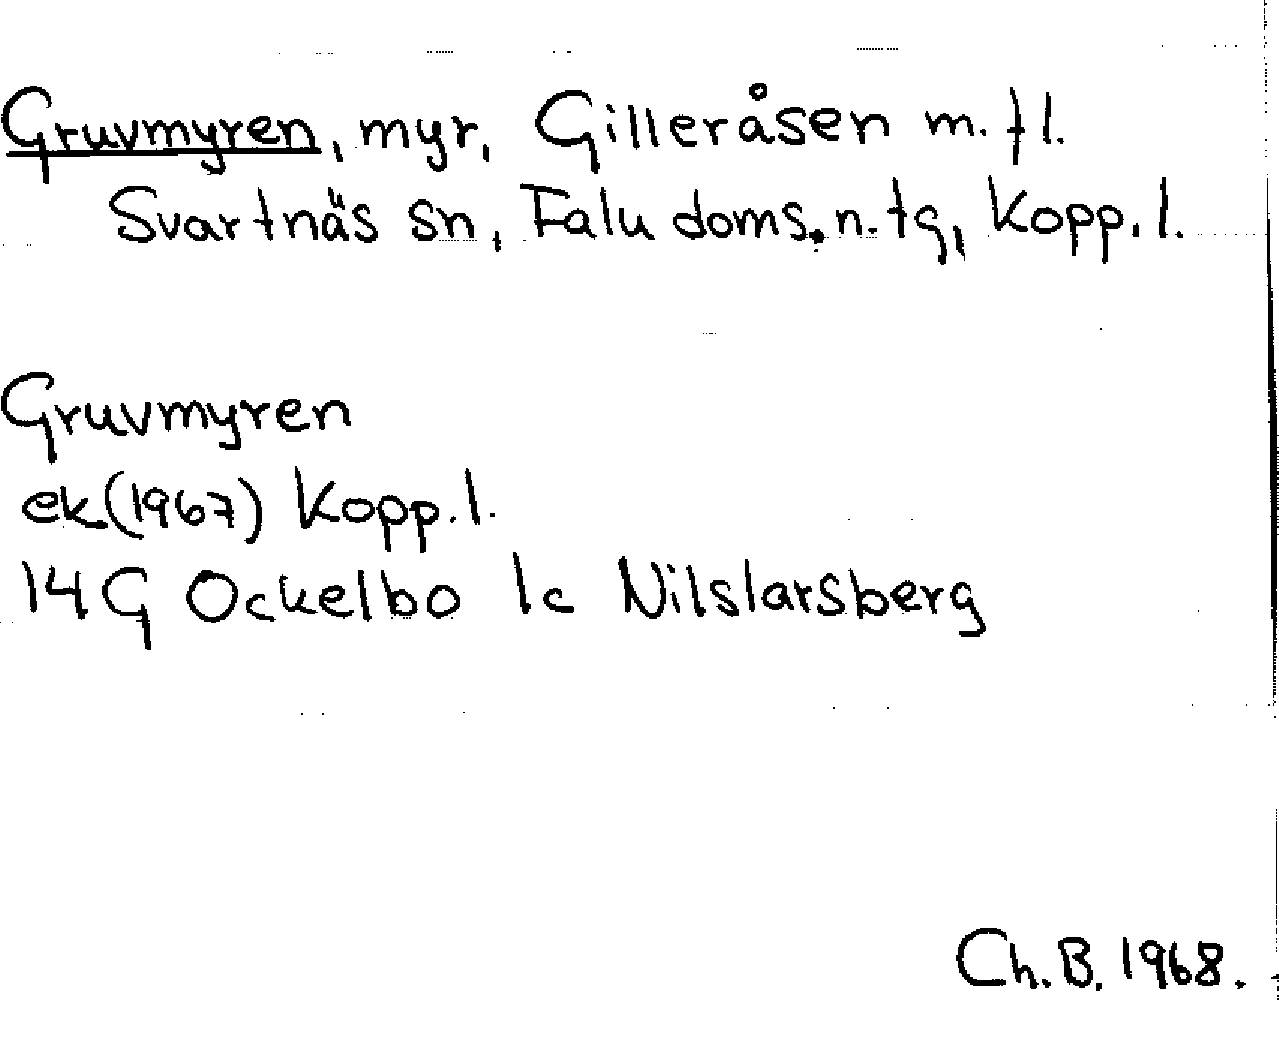 Gruvmyren, myr, Gilleråsen m. fl.
Svartnäs sn, Falu doms. n. tg, Kopp. l.
Gruvmyren
ek (1967) Kopp. l.
14G Ockelbo 1c Nilslarsberg
Ch. B. 1968.